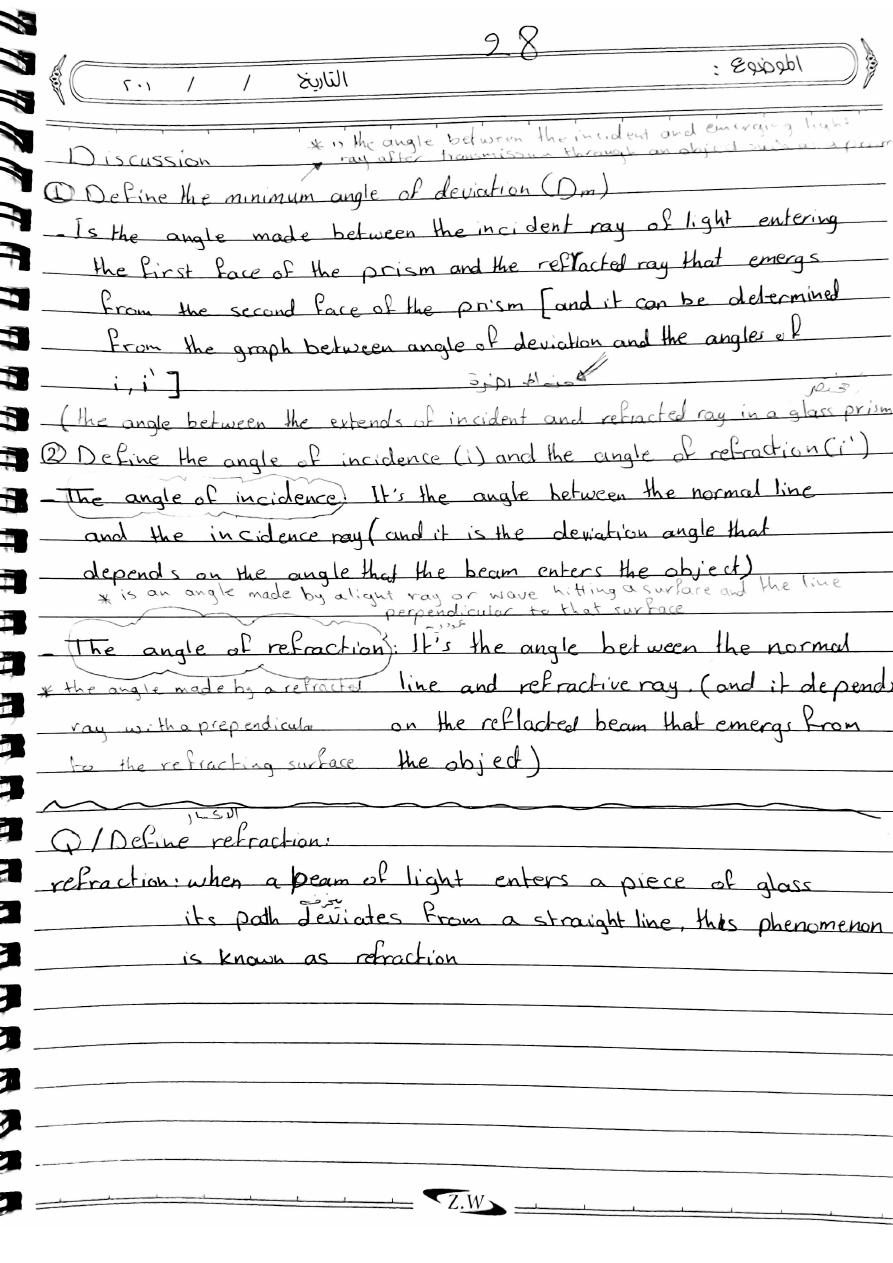 28
الموضوع :
التاريخ / / ٢٠١
* is the angle between the incident and emerging light
Discussion
ray after transmission through an object
① Define the minimum angle of deviation (Dm)
- Is the angle made between the incident ray of light entering
the first face of the prism and the refracted ray that emergs
from the second face of the prism [and it can be determined
from the graph between angle of deviation and the angles of
i, i' ]
(the angle between the extends of incident and refracted ray in a glass prism
② Define the angle of incidence (i) and the angle of refraction (i')
- The angle of incidence: It's the angle between the normal line
and the incidence ray (and it is the deviation angle that
depends on the angle that the beam enters the object)
* is an angle made by a light ray or wave hitting a surface and the line
perpendicular to that surface
- The angle of refraction: It's the angle between the normal
line and refractive ray. (and it depends
on the reflacted beam that emergs from
the object)
* the angle made by a refracted
ray with a prependicular
to the refracting surface
الانكسار
Q / Define refraction:
refraction: when a beam of light enters a piece of glass
ينحرف
its path deviates from a straight line, this phenomenon
is known as refraction
Z.W